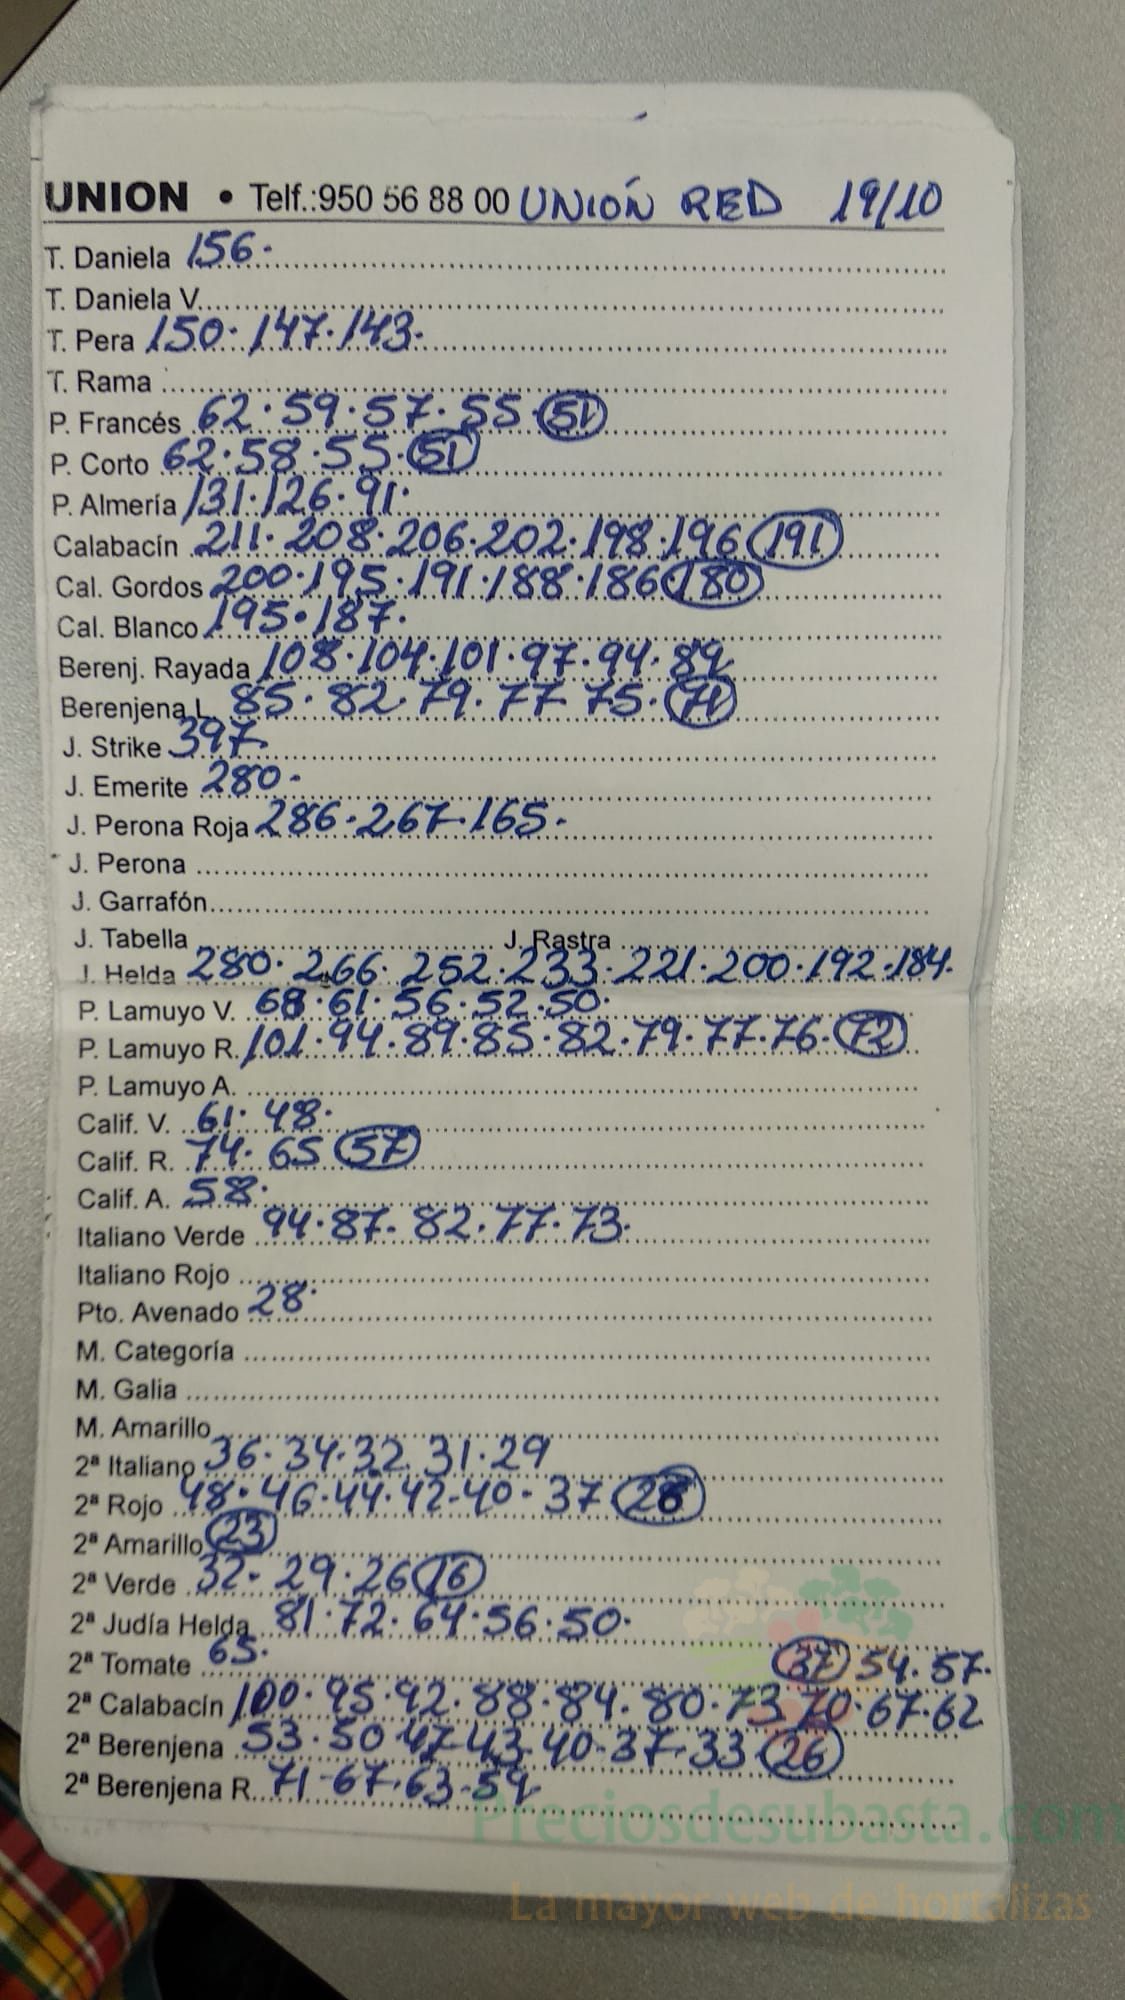 UNION • Telf.:950 56 88 00 UNIÓN RED 19/10
T. Daniela 156.
T. Daniela V.
T. Pera 150.147.143.
T. Rama
P. Francés 62.59.57.55.51
P. Corto 62.58.55.51
P. Almería 131.126.91.
Calabacín 211.208.206.202.198.196 191
Cal. Gordos 200.195.191.188.186 180
Cal. Blanco 195.187.
Berenj. Rayada 108.104.101.97.94.89
Berenjena L. 85.82.79.77.75.71
J. Strike 397.
J. Emerite 280.
J. Perona Roja 286.267.165.
J. Perona
J. Garrafón
J. Tabella J. Rastra
J. Helda 280.266.252.233.221.200.192.184.
P. Lamuyo V. 68.61.56.52.50.
P. Lamuyo R. 101.94.89.85.82.79.77.76.72
P. Lamuyo A.
Calif. V. 61.48.
Calif. R. 74.65 57
Calif. A. 58.
Italiano Verde 94.87.82.77.73.
Italiano Rojo
Pto. Avenado 28.
M. Categoría
M. Galia
M. Amarillo
2ª Italiano 36.34.32.31.29
2ª Rojo 48.46.44.42-40-37
2ª Amarillo 23
2ª Verde 32-29.26 16
2ª Judía Helda 81.72.64.56.50.
2ª Tomate 65. 37 54.57.
2ª Calabacín 100.95.92.88.84.80.73.70.67.62
2ª Berenjena 53.50.47-43.40-37.33 26
2ª Berenjena R. 71-67.63-59
Preciosdesubasta.com
La mayor web de hortalizas